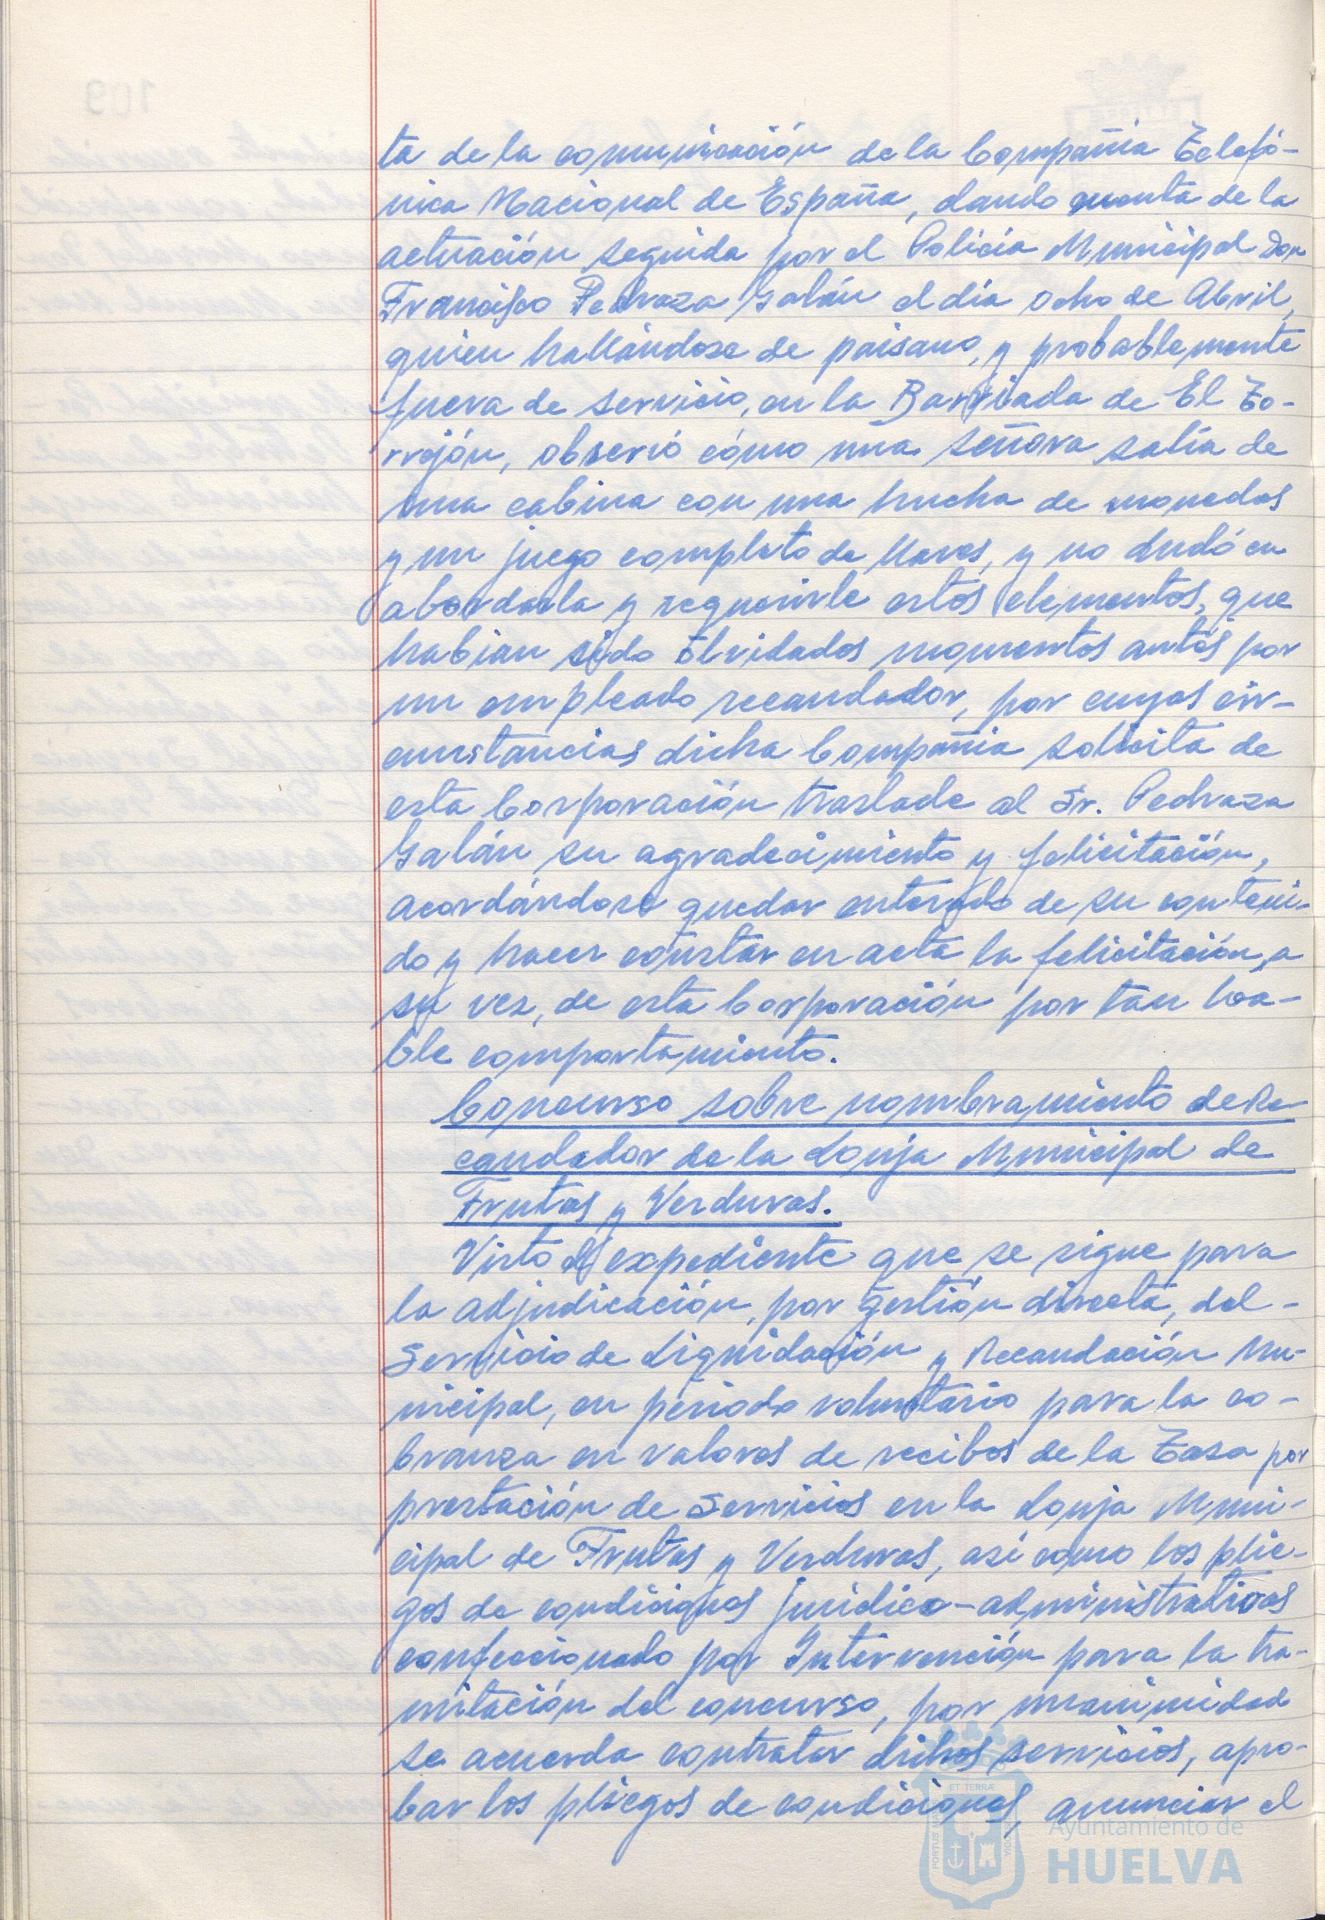 ta de la comunicación de la Compañía Telefó-
nica Nacional de España, dando cuenta de la
actuación seguida por el Policía Municipal Don
Francisco Pedraza Galán el día ocho de Abril,
quien hallándose de paisano, y probablemente
fuera de servicio, en la Barriada de El To-
rrejón, observó cómo una señora salía de
una cabina con una hucha de monedas
y un juego completo de llaves, y no dudó en
abordarla y requerirle estos elementos, que
habían sido olvidados momentos antes por
un empleado recaudador, por cuyas cir-
cunstancias dicha Compañía solicita de
esta Corporación traslade al Sr. Pedraza
Galán su agradecimiento y felicitación,
acordándose quedar enterado de su conteni-
do y hacer constar en acta la felicitación, a
su vez, de esta Corporación por tan loa-
ble comportamiento.
Concurso sobre nombramiento de Re
caudador de la Lonja Municipal de
Frutas y Verduras.
Visto el expediente que se sigue para
la adjudicación, por gestión directa, del-
Servicio de Liquidación y Recaudación Mu-
nicipal, en periodo voluntario para la co-
branza en valores de recibos de la Tasa por
prestación de Servicios en la Lonja Muni-
cipal de Frutas y Verduras, así como los plie-
gos de condiciones jurídico-administrativas
confeccionado por Intervención para la tra-
mitación del concurso, por unanimidad
se acuerda contratar dichos servicios, apro-
bar los pliegos de condiciones, anunciar el
Ayuntamiento de
HUELVA